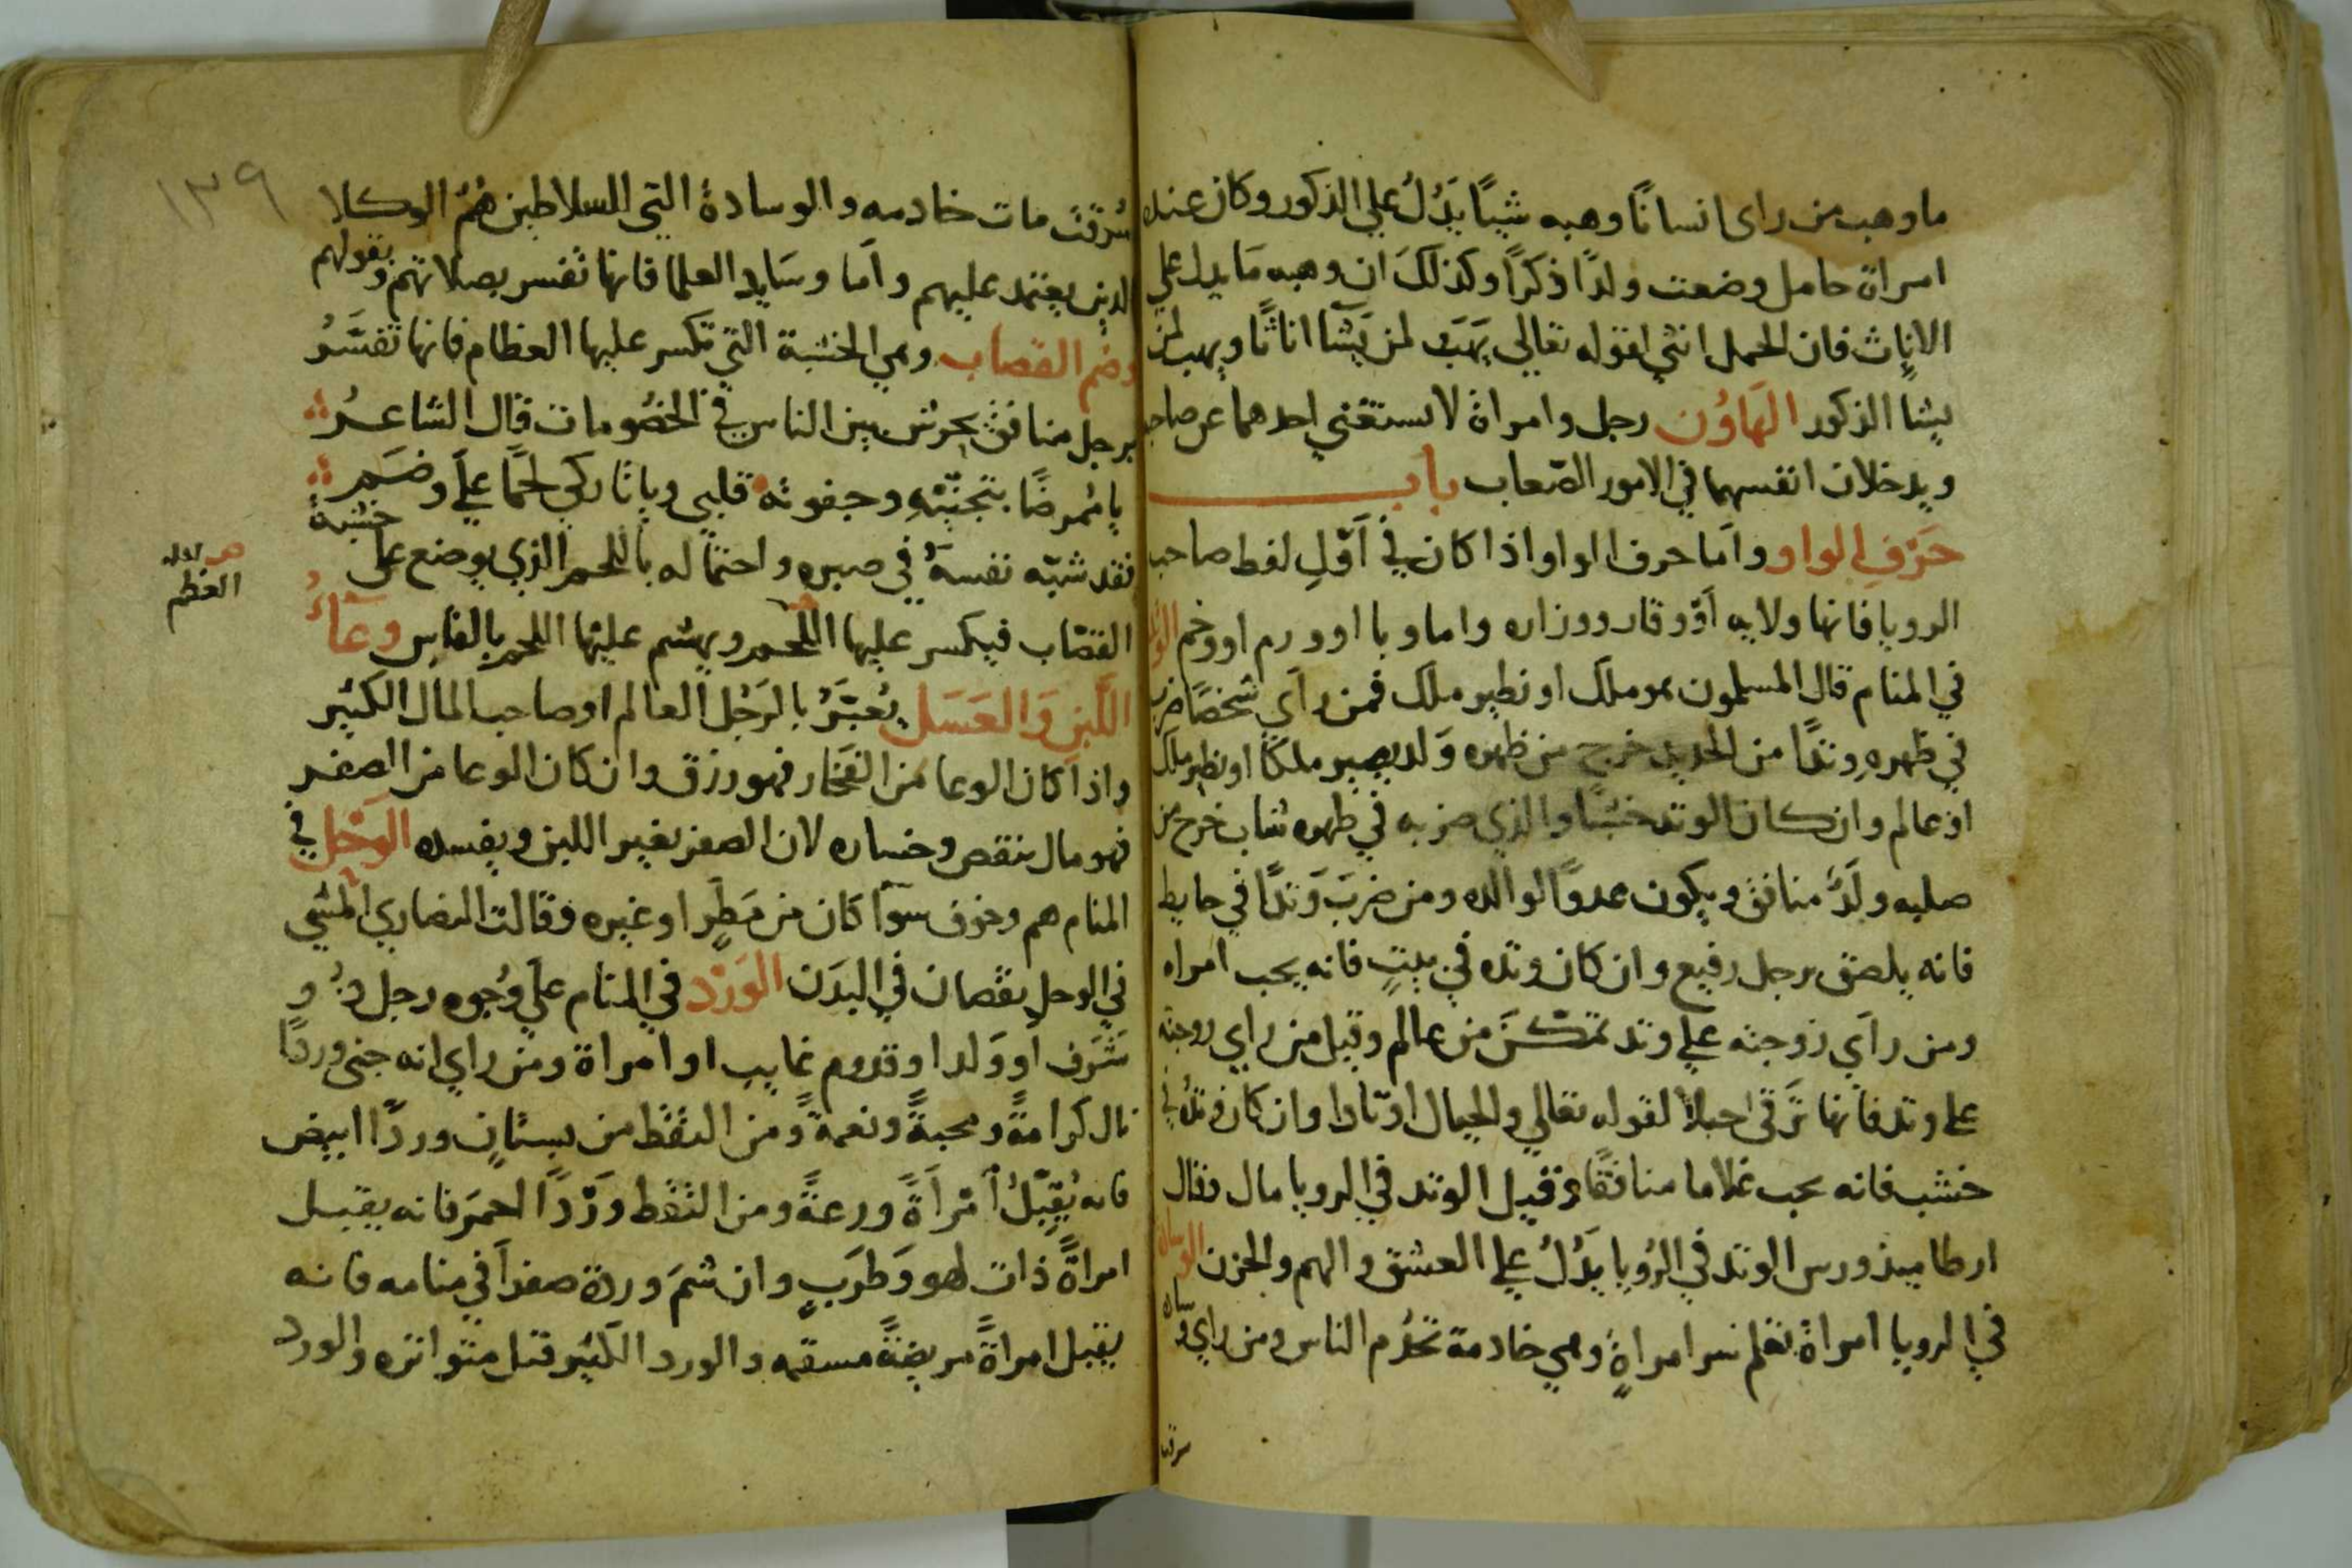 ما وهب من راى انسانًا وهبه شيئًا يَدُلُ علي الذكور وكان عنده
امراة حامل وضعت ولدًا ذكرًا وكذلك ان وهبه مَا يدل علي
الاناث فان الحمل انثي لقوله تعالي يَهَبُ لمن يَشَآ اناثًا ويهب لمن
يشا الذكور الهَاوُن رجل وامراة لا يستغني احدهما عن صاحبه
ويدخلان انفسهما في الامور الصّعاب باب
حَرْفِ الواو واَما حرف الواو اذا كان في اَوّلِ لفظ صاحب
الرويا فانها ولايه اَوْ وقار ووزاره واما وبا او ورم او وخم الوَتد
في المنام قال المسلمون هو ملك او نظير ملك فمن رآي شخصًا ضرب
في ظهرهِ وتدًا من الحديد خرج من ظهره وَلد يصير ملكًا او نظير ملك
اوْ عالم وان كان الوتد خشبًا والذي ضربه في ظهره شاب خرج من
صلبه ولَدٌ منافق ويكون عدوًا لوالده ومن ضربَ وَتدًا في حايط
فانه يلصق برجل رفيع وان كان وتده في بيتٍ فانه يحب امراه
ومن رآي زوجته علي وتد تمكنَ من عالم وقيل من راي زوجته
علي وتد فانها تَرقي اجبلا لقوله تعالي والجبال اوتادا وان كان وتدُ في
خشب فانه يحب غلاما منافقًا وقيل الوتد في الرويا مال فقال
ارطاميذورس الوتد في الرُويا يَدُلُ علي العشق والهم والحزن الوسادة
في الرويا امراةٌ تعلم سر امراةٍ وهي خادمة تخدُم الناس ومن راي وسادة
سرقت
١٣٩
سُرقتْ مات خادمه والوسادةُ التي السلاطين هُمْ الوكلا
الدين يعتمد عليهم واَما وسَايد العلما فانها تفسر بصلاتهم وبقولهم
وضم القصاب وهي الخشبة التي تكسر عليها العظام فانها تفسَّرُ
برجل منافق يحرش بين الناس في الخصُومات قال الشاعرُ
يا مُمرضًا بتجنّبهِ وجفوته قلبي ويا تاركي لحمًا علي وضَم
فقد شبّه نفسهُ في صبره واحتماله باللحم الذي يوضع علي خشبة
القصّاب فيكسر عليها اللحم ويهشم عليها اللحم بالفاس وعَآءُ
العظم
اللّبنِ وَالعَسَل يُعبَّرُ بالرَجُل العالم او صاحب المال الكثير
واذا كان الوعا من الفَخار فهو رزق وان كان الوعا من الصفر
فهو مال بنقص وخساره لان الصفر يغير اللبن ويفسده الوَحْل في
المنام هم وخوف سوآ كان من مَطَرٍ او غيره وقالت النصاري المشي
في الوحل نقصان في البدَن الوَرْد في المنام علي وُجوه رجل ذُو
شَرَف او وَلد او قدوم غايب او امراة ومن راي انه جني وردًا
نال كرامةً ومحبةً ونعمةً ومن التقط من بستانٍ وردًا ابيض
فانه يُقبّلُ اَمْراَةً ورعةً ومن التقط وَرْدًا احمَر فانه يقبل
امراةً ذات لهو وَطرَبٍ وان شمَ وردة صفرآ في منامه فانه
يقبل امراةً مريضةً مسقمه والورد الكثير قبل متواتره والورد